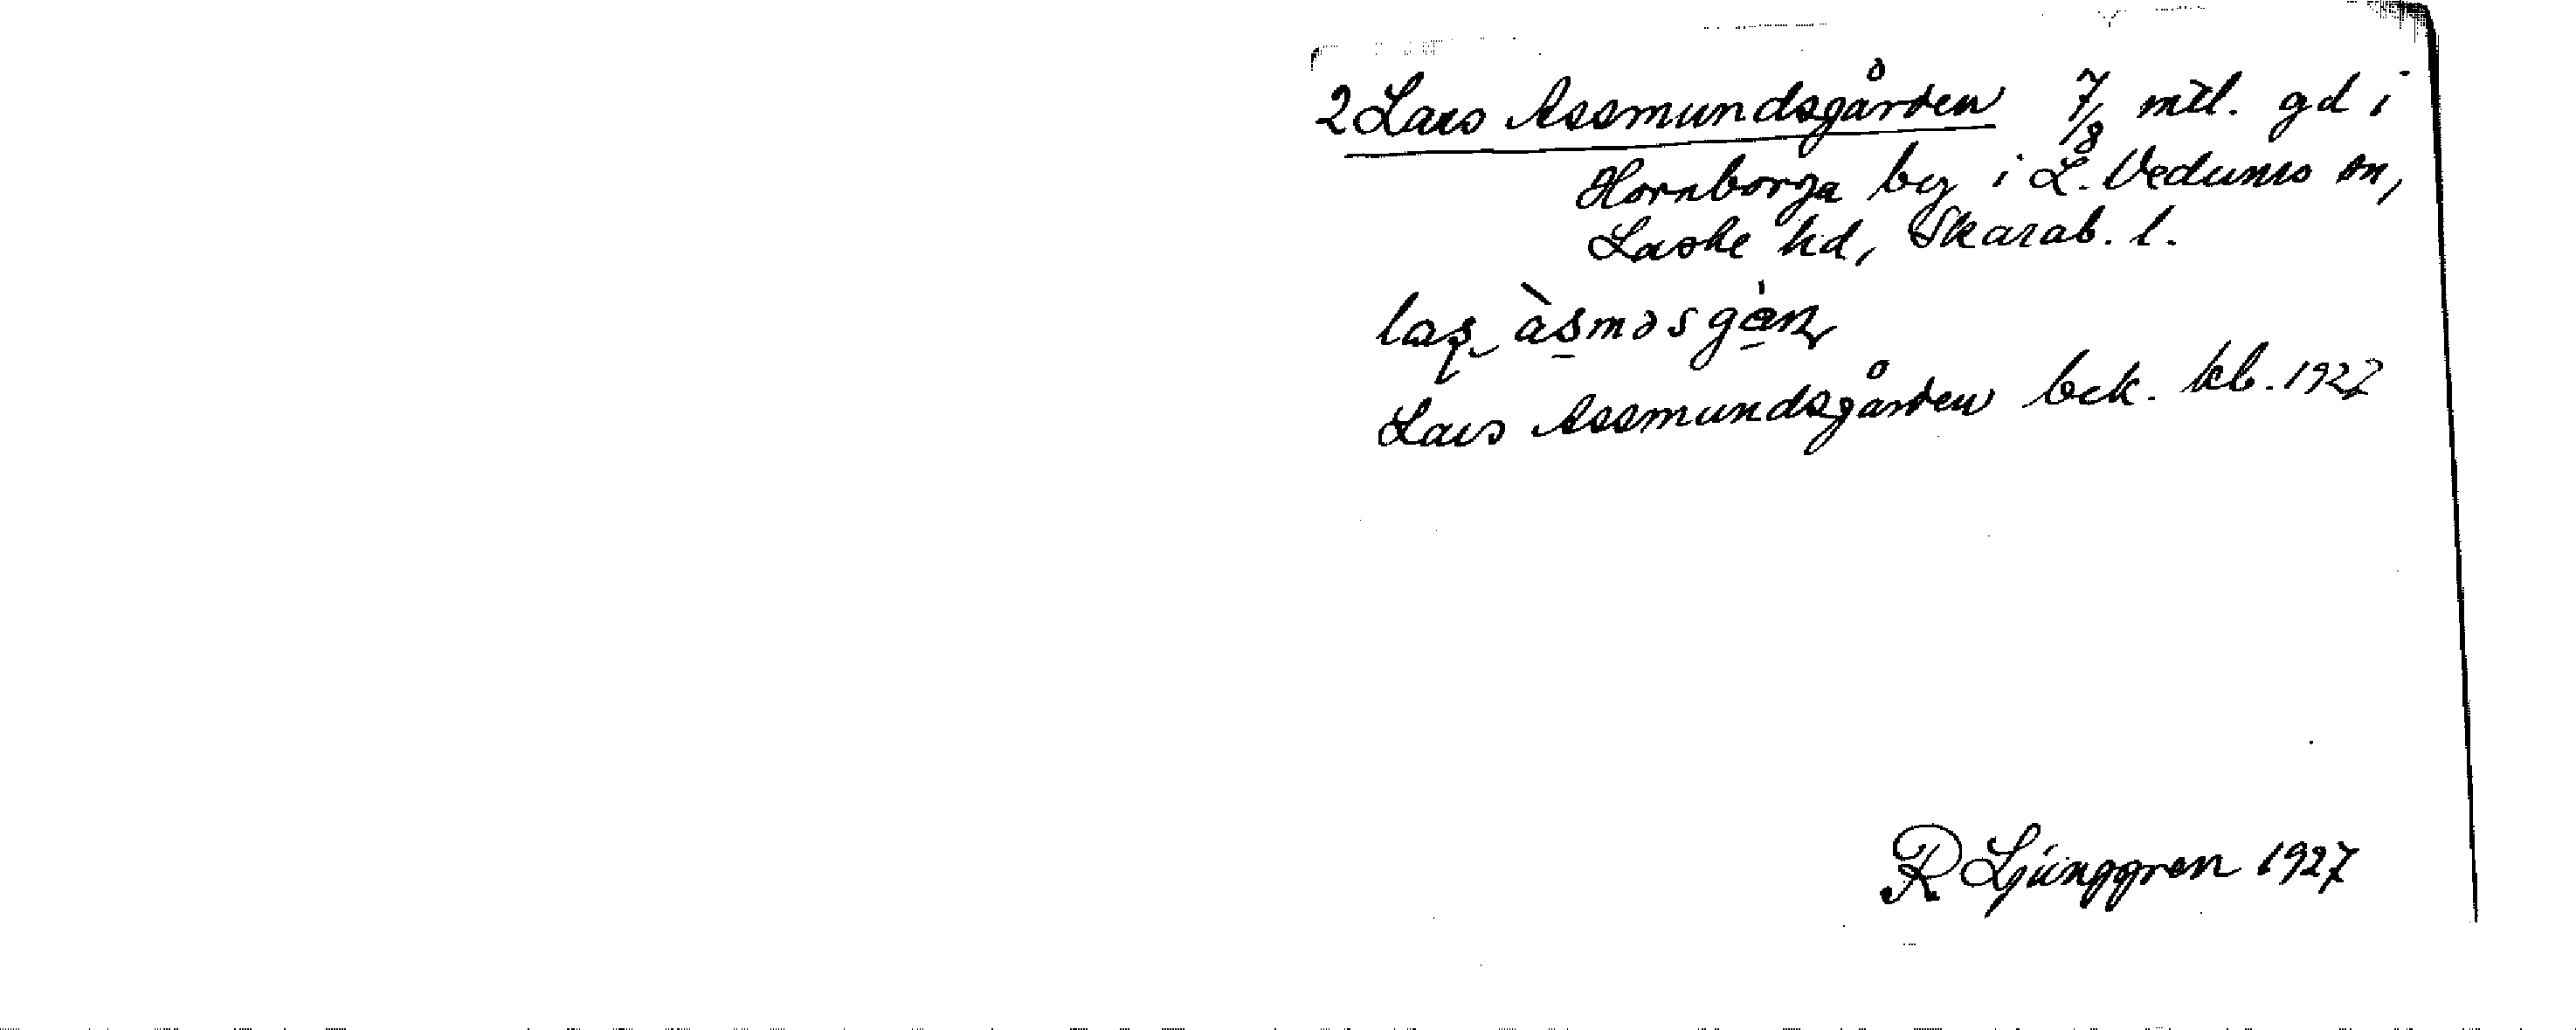 2 Lars Assmundsgården 7/8 mtl. gd i
Hornborga by i L. Vedums sn,
Laske hd, Skarab. l.
laş àsməsgàṇ
Lars Assmundsgården bek. kb. 1927
R Ljunggren 1927